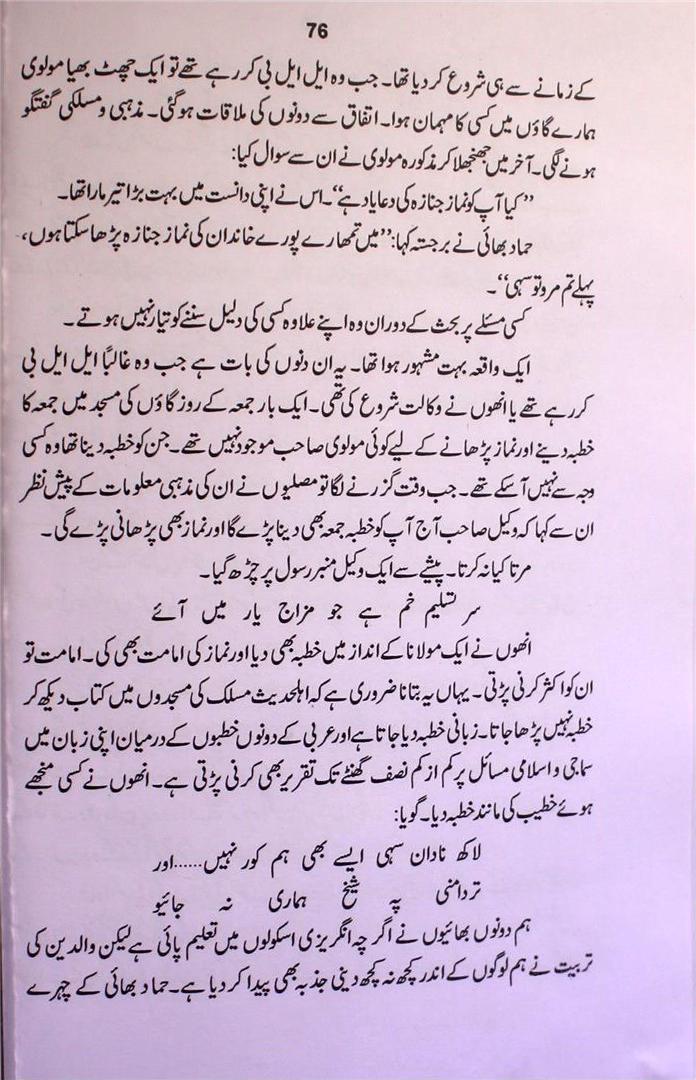 76
کے زمانے سے ہی شروع کر دیا تھا۔ جب وہ ایل ایل بی کر رہے تھے تو ایک چھٹ بھیا مولوی
ہمارے گاؤں میں کسی کا مہمان ہوا۔ اتفاق سے دونوں کی ملاقات ہوگئی۔ مذہبی و مسلکی گفتگو
ہونے لگی۔ آخر میں جھنجھلا کر مذکورہ مولوی نے ان سے سوال کیا:
”کیا آپ کو نماز جنازہ کی دعا یاد ہے“۔ اس نے اپنی دانست میں بہت بڑا تیر مارا تھا۔
حماد بھائی نے برجستہ کہا: ”میں تمھارے پورے خاندان کی نماز جنازہ پڑھا سکتا ہوں،
پہلے تم مرو تو سہی“۔
کسی مسئلے پر بحث کے دوران وہ اپنے علاوہ کسی کی دلیل سننے کو تیار نہیں ہوتے۔
ایک واقعہ بہت مشہور ہوا تھا۔ یہ ان دنوں کی بات ہے جب وہ غالباً ایل ایل بی
کر رہے تھے یا انھوں نے وکالت شروع کی تھی۔ ایک بار جمعہ کے روز گاؤں کی مسجد میں جمعہ کا
خطبہ دینے اور نماز پڑھانے کے لیے کوئی مولوی صاحب موجود نہیں تھے۔ جن کو خطبہ دینا تھا وہ کسی
وجہ سے نہیں آسکے تھے۔ جب وقت گزرنے لگا تو مصلیوں نے ان کی مذہبی معلومات کے پیش نظر
ان سے کہا کہ وکیل صاحب آج آپ کو خطبہ جمعہ بھی دینا پڑے گا اور نماز بھی پڑھانی پڑے گی۔
مرتا کیا نہ کرتا۔ پیشے سے ایک وکیل منبر رسول پر چڑھ گیا۔
سر تسلیم خم ہے جو مزاج یار میں آئے
انھوں نے ایک مولانا کے انداز میں خطبہ بھی دیا اور نماز کی امامت بھی کی۔ امامت تو
ان کو اکثر کرنی پڑتی۔ یہاں یہ بتانا ضروری ہے کہ اہلحدیث مسلک کی مسجدوں میں کتاب دیکھ کر
خطبہ نہیں پڑھا جاتا۔ زبانی خطبہ دیا جاتا ہے اور عربی کے دونوں خطبوں کے درمیان اپنی زبان میں
سماجی و اسلامی مسائل پر کم از کم نصف گھنٹے تک تقریر بھی کرنی پڑتی ہے۔ انھوں نے کسی منجھے
ہوئے خطیب کی مانند خطبہ دیا۔ گویا:
لاکھ نادان سہی ایسے بھی ہم کور نہیں......اور
تر دامنی پہ شیخ ہماری نہ جائیو
ہم دونوں بھائیوں نے اگرچہ انگریزی اسکولوں میں تعلیم پائی ہے لیکن والدین کی
تربیت نے ہم لوگوں کے اندر کچھ نہ کچھ دینی جذبہ بھی پیدا کر دیا ہے۔ حماد بھائی کے چہرے